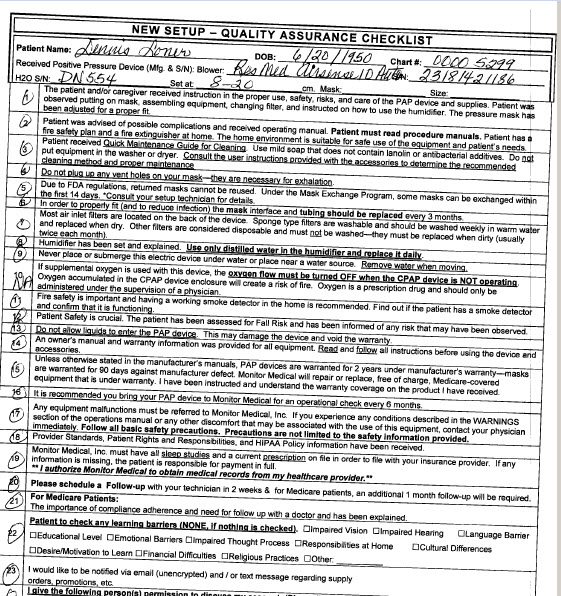 NEW SETUP – QUALITY ASSURANCE CHECKLIST
Patient Name: Dennis Loner DOB: 6/20/1950 Chart #: 0000 5299
Received Positive Pressure Device (Mfg. & S/N): Blower: ResMed Airsense 10 Auto S/N: 23181421186
H2O S/N: DN554 Set at: 8-20 cm. Mask: Size:
1 The patient and/or caregiver received instruction in the proper use, safety, risks, and care of the PAP device and supplies. Patient was
observed putting on mask, assembling equipment, changing filter, and instructed on how to use the humidifier. The pressure mask has
been adjusted for a proper fit.
2 Patient was advised of possible complications and received operating manual. Patient must read procedure manuals. Patient has a
fire safety plan and a fire extinguisher at home. The home environment is suitable for safe use of the equipment and patient's needs.
3 Patient received Quick Maintenance Guide for Cleaning. Use mild soap that does not contain lanolin or antibacterial additives. Do not
put equipment in the washer or dryer. Consult the user instructions provided with the accessories to determine the recommended
cleaning method and proper maintenance
4 Do not plug up any vent holes on your mask—they are necessary for exhalation.
5 Due to FDA regulations, returned masks cannot be reused. Under the Mask Exchange Program, some masks can be exchanged within
the first 14 days. *Consult your setup technician for details.
6 In order to properly fit (and to reduce infection) the mask interface and tubing should be replaced every 3 months.
7 Most air inlet filters are located on the back of the device. Sponge type filters are washable and should be washed weekly in warm water
and replaced when dry. Other filters are considered disposable and must not be washed—they must be replaced when dirty (usually
twice each month).
8 Humidifier has been set and explained. Use only distilled water in the humidifier and replace it daily.
9 Never place or submerge this electric device under water or place near a water source. Remove water when moving.
10 NA If supplemental oxygen is used with this device, the oxygen flow must be turned OFF when the CPAP device is NOT operating
Oxygen accumulated in the CPAP device enclosure will create a risk of fire. Oxygen is a prescription drug and should only be
administered under the supervision of a physician.
11 Fire safety is important and having a working smoke detector in the home is recommended. Find out if the patient has a smoke detector
and confirm that it is functioning.
12 Patient Safety is crucial. The patient has been assessed for Fall Risk and has been informed of any risk that may have been observed.
13 Do not allow liquids to enter the PAP device. This may damage the device and void the warranty.
14 An owner's manual and warranty information was provided for all equipment. Read and follow all instructions before using the device and
accessories.
15 Unless otherwise stated in the manufacturer's manuals, PAP devices are warranted for 2 years under manufacturer's warranty—masks
are warranted for 90 days against manufacturer defect. Monitor Medical will repair or replace, free of charge, Medicare-covered
equipment that is under warranty. I have been instructed and understand the warranty coverage on the product I have received.
16 It is recommended you bring your PAP device to Monitor Medical for an operational check every 6 months.
17 Any equipment malfunctions must be referred to Monitor Medical, Inc. If you experience any conditions described in the WARNINGS
section of the operations manual or any other discomfort that may be associated with the use of this equipment, contact your physician
immediately. Follow all basic safety precautions. Precautions are not limited to the safety information provided.
18 Provider Standards, Patient Rights and Responsibilities, and HIPAA Policy information have been received.
19 Monitor Medical, Inc. must have all sleep studies and a current prescription on file in order to file with your insurance provider. If any
information is missing, the patient is responsible for payment in full.
** I authorize Monitor Medical to obtain medical records from my healthcare provider.**
20 Please schedule a Follow-up with your technician in 2 weeks & for Medicare patients, an additional 1 month follow-up will be required.
21 For Medicare Patients:
The importance of compliance adherence and need for follow up with a doctor and has been explained.
22 Patient to check any learning barriers (NONE, if nothing is checked). □Impaired Vision □Impaired Hearing □Language Barrier
□Educational Level □Emotional Barriers □Impaired Thought Process □Responsibilities at Home □Cultural Differences
□Desire/Motivation to Learn □Financial Difficulties □Religious Practices □Other:
23 I would like to be notified via email (unencrypted) and / or text message regarding supply
orders, promotions, etc.
I give the following person(s) permission to discuss my